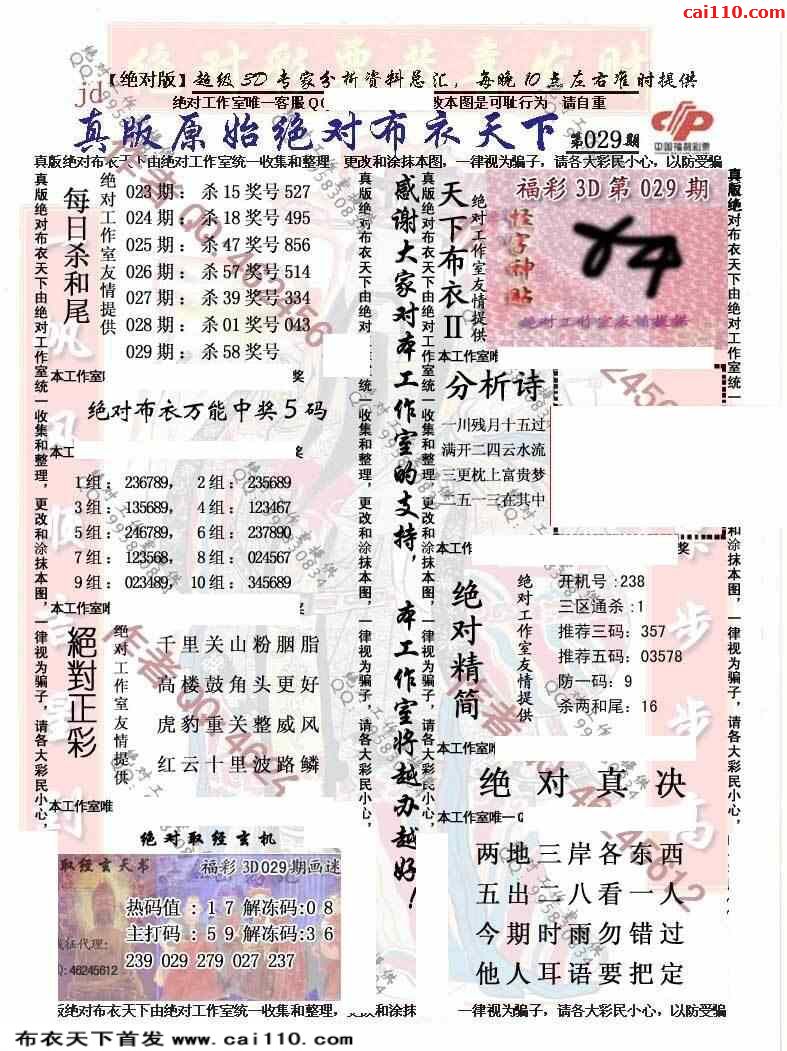 cai110.com
【绝对版】超级3D专家分析资料总汇，每晚10点左右准时提供
jd
绝对工作室唯一客服QQ
改本图是可耻行为 请自重
真版原始绝对布衣天下
第029期
中国福利彩票
真版绝对布衣天下由绝对工作室统一收集和整理，更改和涂抹本图，一律视为骗子，请各大彩民小心，以防受骗
真版绝对布衣天下由绝对工作室统一收集和整理，更改和涂抹本图，一律视为骗子，请各大彩民小心，
每日杀和尾
绝对工作室友情提供
023期：杀15奖号527
024期：杀18奖号495
025期：杀47奖号856
026期：杀57奖号514
027期：杀39奖号334
028期：杀01奖号043
029期：杀58奖号
本工作室
奖
绝对布衣万能中奖5码
本工
奖
1组：236789， 2组：235689
3组：135689， 4组：123467
5组：246789， 6组：237890
7组：123568， 8组：024567
9组：023489， 10组：345689
本工作室唯
奖
絕對正彩
绝对工作室友情提供
千里关山粉胭脂
高楼鼓角头更好
虎豹重关整威风
红云十里波路鳞
本工作室唯
绝对取经玄机
取经玄天书
福彩3D029期画迷
热码值：17解冻码:08
主打码：59解冻码:36
239 029 279 027 237
征代理:
Q: 46245612
真版绝对布衣天下由绝对工作室统一收集和整理，更改和涂抹本图，一律视为骗子，请各大彩民小心，
感谢大家对本工作室的支持，本工作室将越办越好！
真版绝对布衣天下由绝对工作室统一收集和整理，更改和涂抹本图，一律视为骗子，请各大彩民小心，
天下布衣II
绝对工作室友情提供
福彩3D第029期
怪字神贴
绝对工作室友情提供
本工作室唯
分析诗
一川残月十五过
满开二四云水流
三更枕上富贵梦
二五一三在其中
本工作
奖
绝对精简
绝对工作室友情提供
开机号:238
三区通杀:1
推荐三码：357
推荐五码：03578
防一码：9
杀两和尾：16
本工作室唯
绝对真决
本工作室唯一Q
两地三岸各东西
五出二八看一人
今期时雨勿错过
他人耳语要把定
真版绝对布衣天下由绝对工作室统一收集和整理，更改和涂抹本图，一律视为骗子，请各大彩民小心，
版绝对布衣天下由绝对工作室统一收集和整理，更改和涂抹
一律视为骗子，请各大彩民小心，以防受骗
布衣天下首发 www.cai110.com